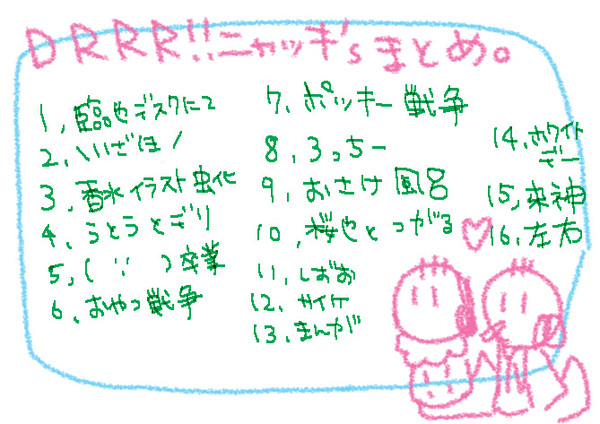 DRRR!!ニャッキ'sまとめ。
1、臨也デスクにて
2、いざほ!
3、香水イラスト虫化
4、うとうとデリ
5、(∵)卒業
6、おやつ戦争
7、ポッキー戦争
8、ろっちー
9、おさけ風呂
10、桜也とつがる
11、しずお
12、サイケ
13、まんが
14、ホワイト
デー
15、来神
16、左右